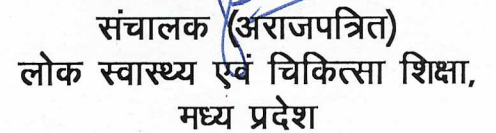 संचालक (अराजपत्रित)
लोक स्वास्थ्य एवं चिकित्सा शिक्षा,
मध्य प्रदेश